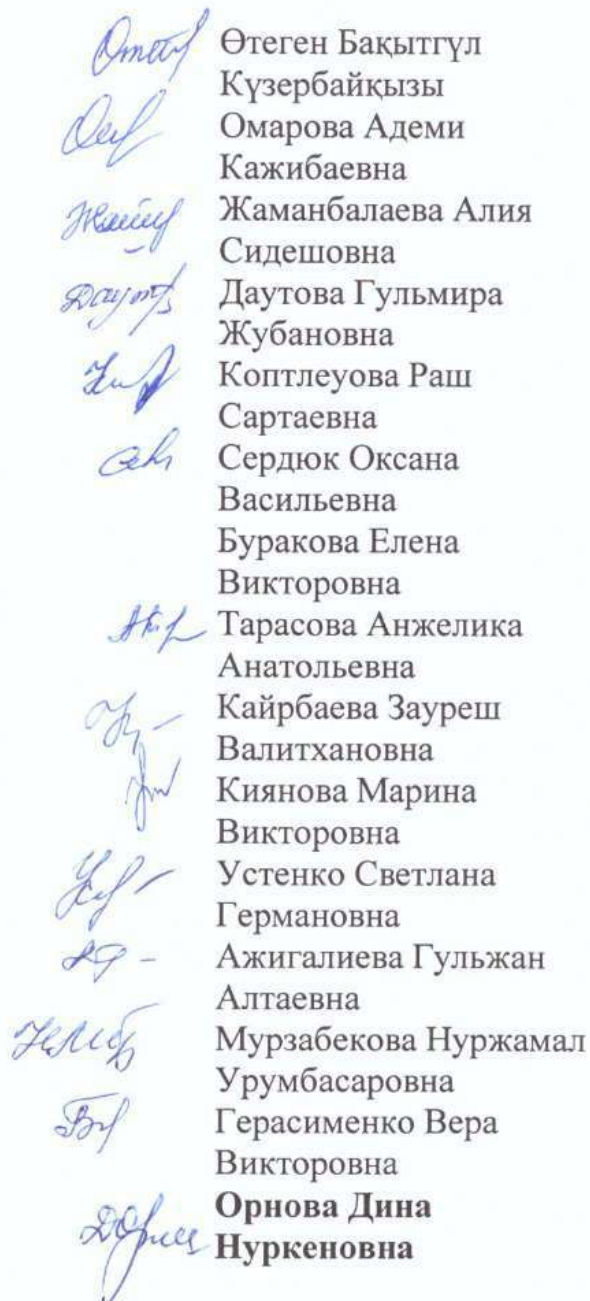 Өтеген Бақытгүл
Күзербайқызы
Омарова Адеми
Кажибаевна
Жаманбалаева Алия
Сидешовна
Даутова Гульмира
Жубановна
Коптлеуова Раш
Сартаевна
Сердюк Оксана
Васильевна
Буракова Елена
Викторовна
Тарасова Анжелика
Анатольевна
Кайрбаева Зауреш
Валитхановна
Киянова Марина
Викторовна
Устенко Светлана
Германовна
Ажигалиева Гульжан
Алтаевна
Мурзабекова Нуржамал
Урумбасаровна
Герасименко Вера
Викторовна
Орнова Дина
Нуркеновна